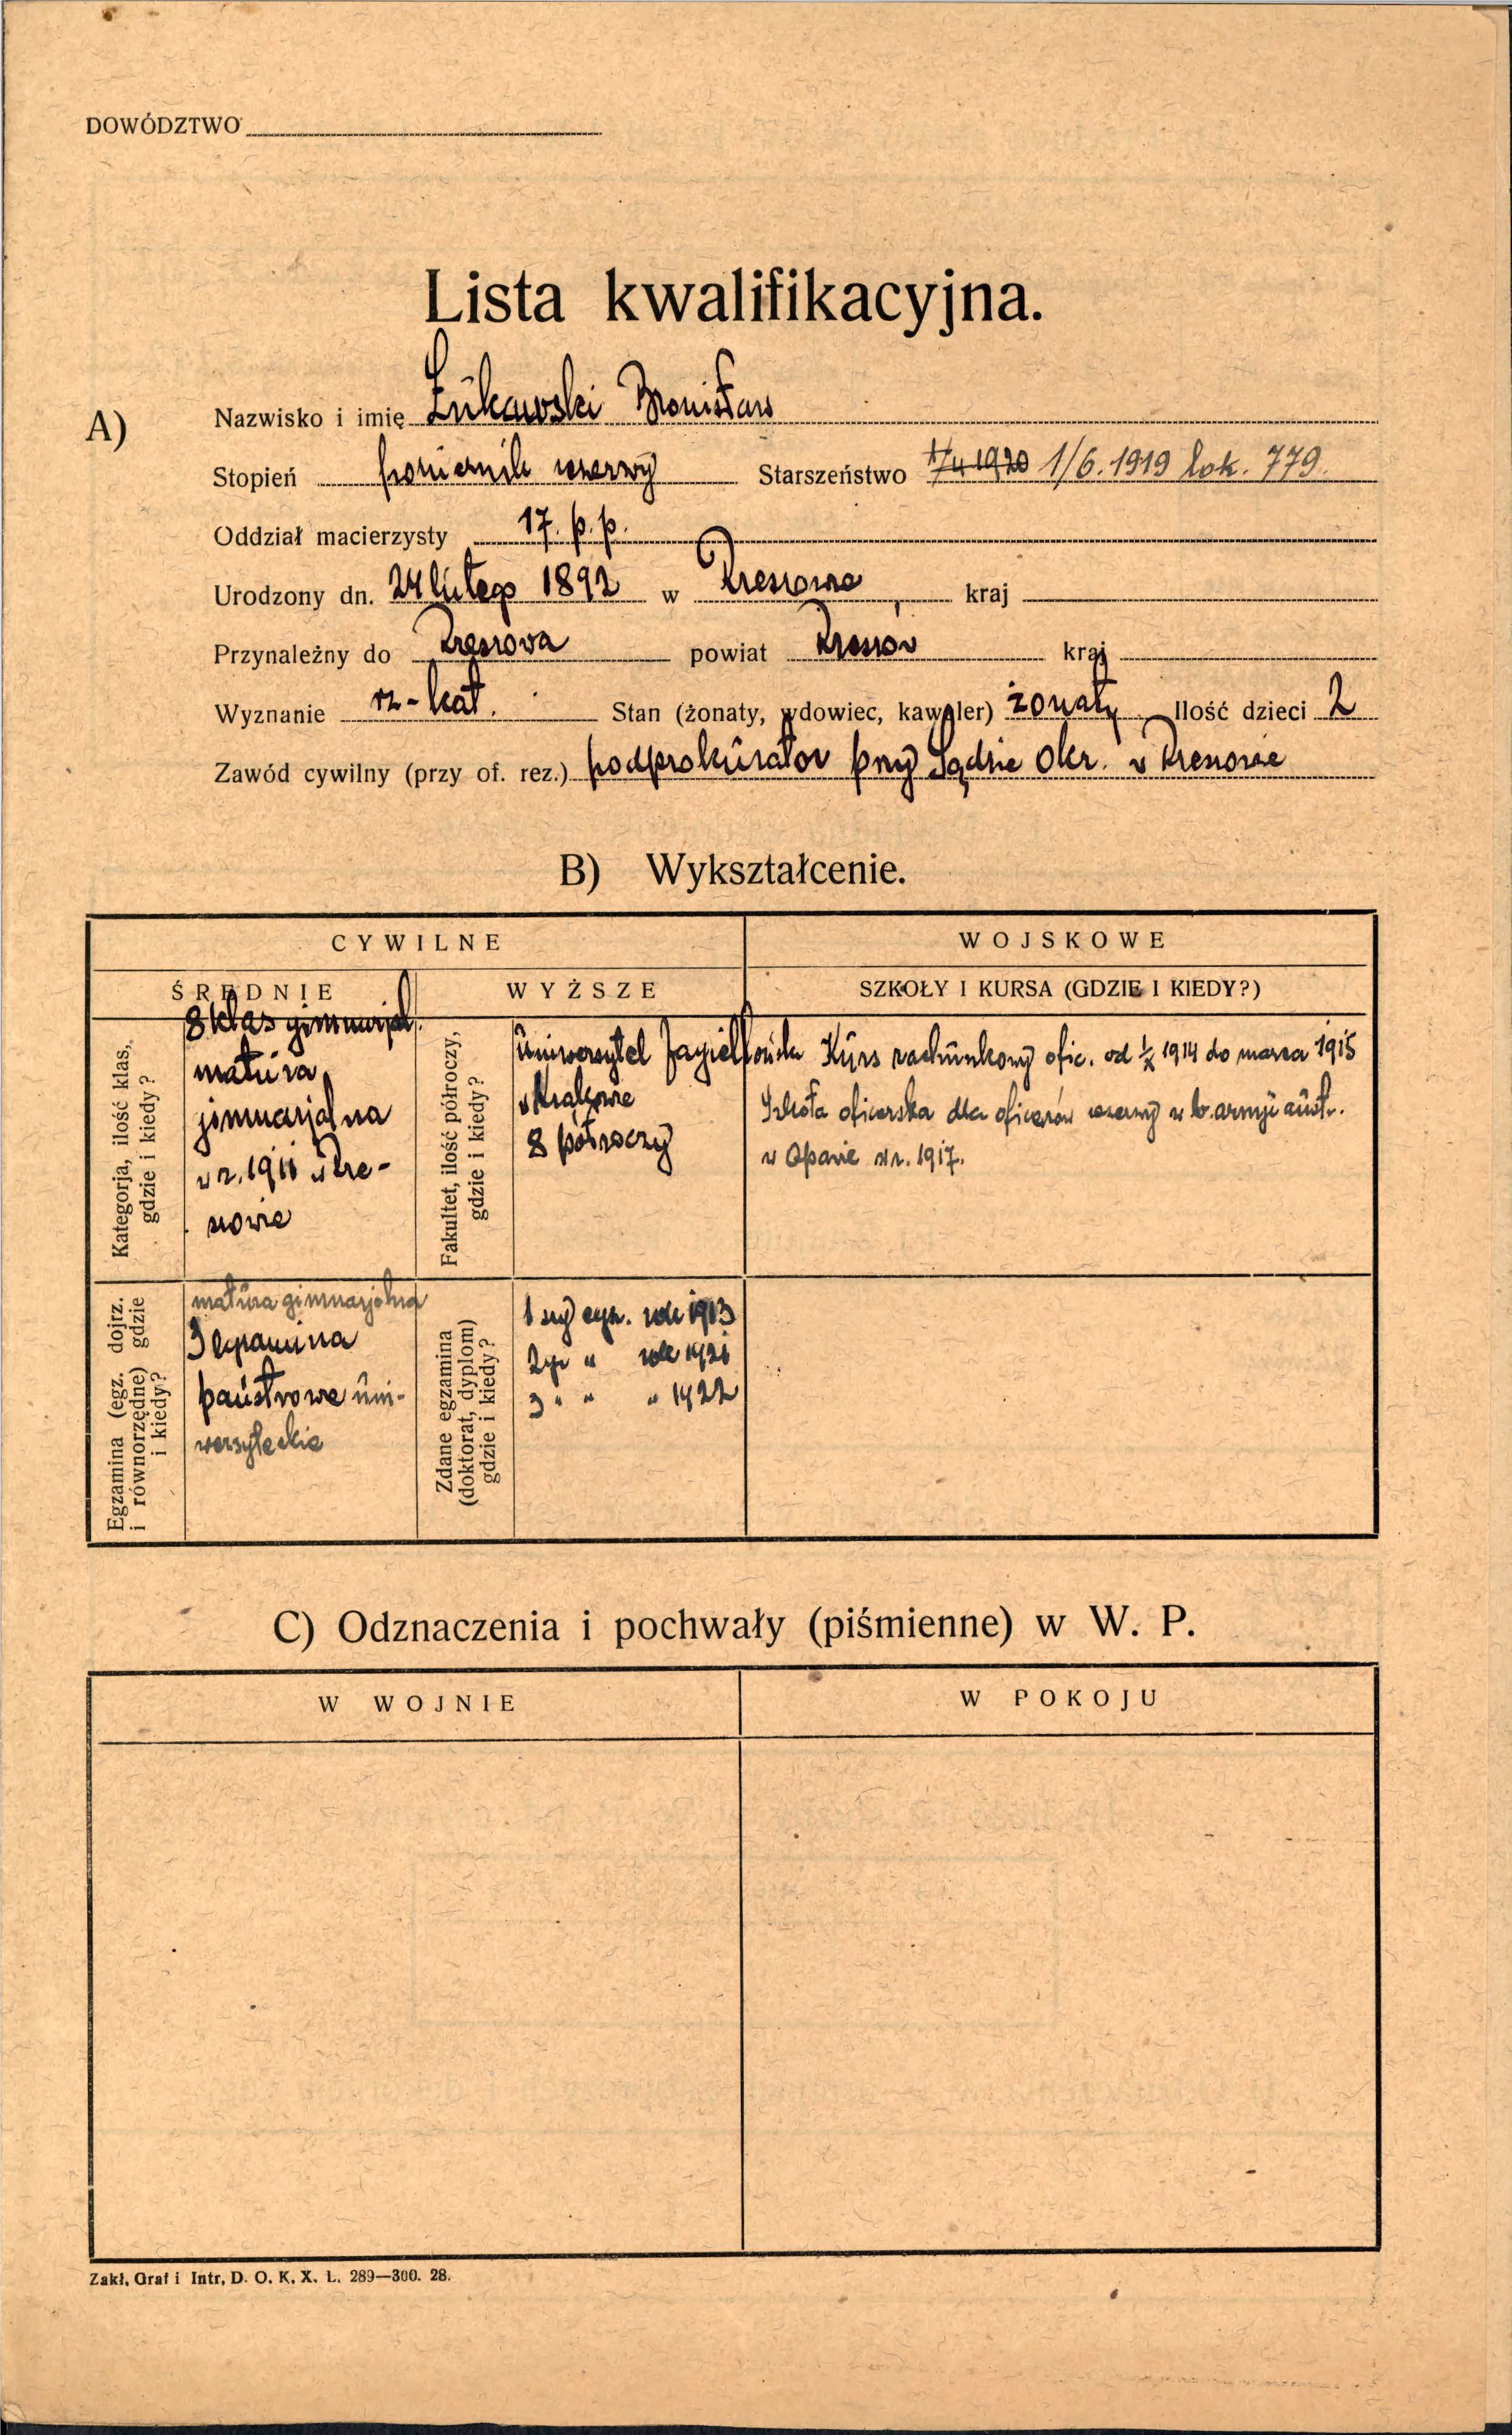 DOWÓDZTWO
Lista kwalifikacyjna.
A) Nazwisko i imię Żukawski Bronisław
Stopień porucznik rezerwy Starszeństwo 1/6. 1919 lok. 779.
Oddział macierzysty 17. p. p.
Urodzony dn. 24 lutego 1892 w Rzeszowie, kraj
Przynależny do Rzeszowa powiat Rzeszów kraj
Wyznanie rz-kat. Stan (żonaty, wdowiec, kawaler) żonaty Ilość dzieci 2
Zawód cywilny (przy of. rez.) podprokurator przy Sądzie Okr. w Rzeszowie
B) Wykształcenie.
CYWILNE
WOJSKOWE
ŚREDNIE
WYŻSZE
SZKOŁY I KURSA (GDZIE I KIEDY?)
Kategorja, ilość klas,
gdzie i kiedy?
8 klas gimnazjal.
matura
gimnazjalna
w r. 1911 w Rze-
szowie
Fakultet, ilość półroczy,
gdzie i kiedy?
Uniwersytet Jagielloński
w Krakowie
8 półroczy
Kurs rachunkowy ofic. od 1/X 1914 do marca 1915
Szkoła oficerska dla oficerów rezerwy w b. armji austr.
w Opawie w r. 1917.
Egzamina (egz. dojrz.
i równorzędne) gdzie
i kiedy?
matura gimnazjalna
3 egzamina
państwowe uni-
wersyteckie
Zdane egzamina
(doktorat, dyplom)
gdzie i kiedy?
1 szy egz. rok 1913
2gi " rok 1921
3 " " " 1922
C) Odznaczenia i pochwały (piśmienne) w W. P.
W WOJNIE
W POKOJU
Zakł. Graf i Intr. D. O. K. X. L. 289—300. 28.